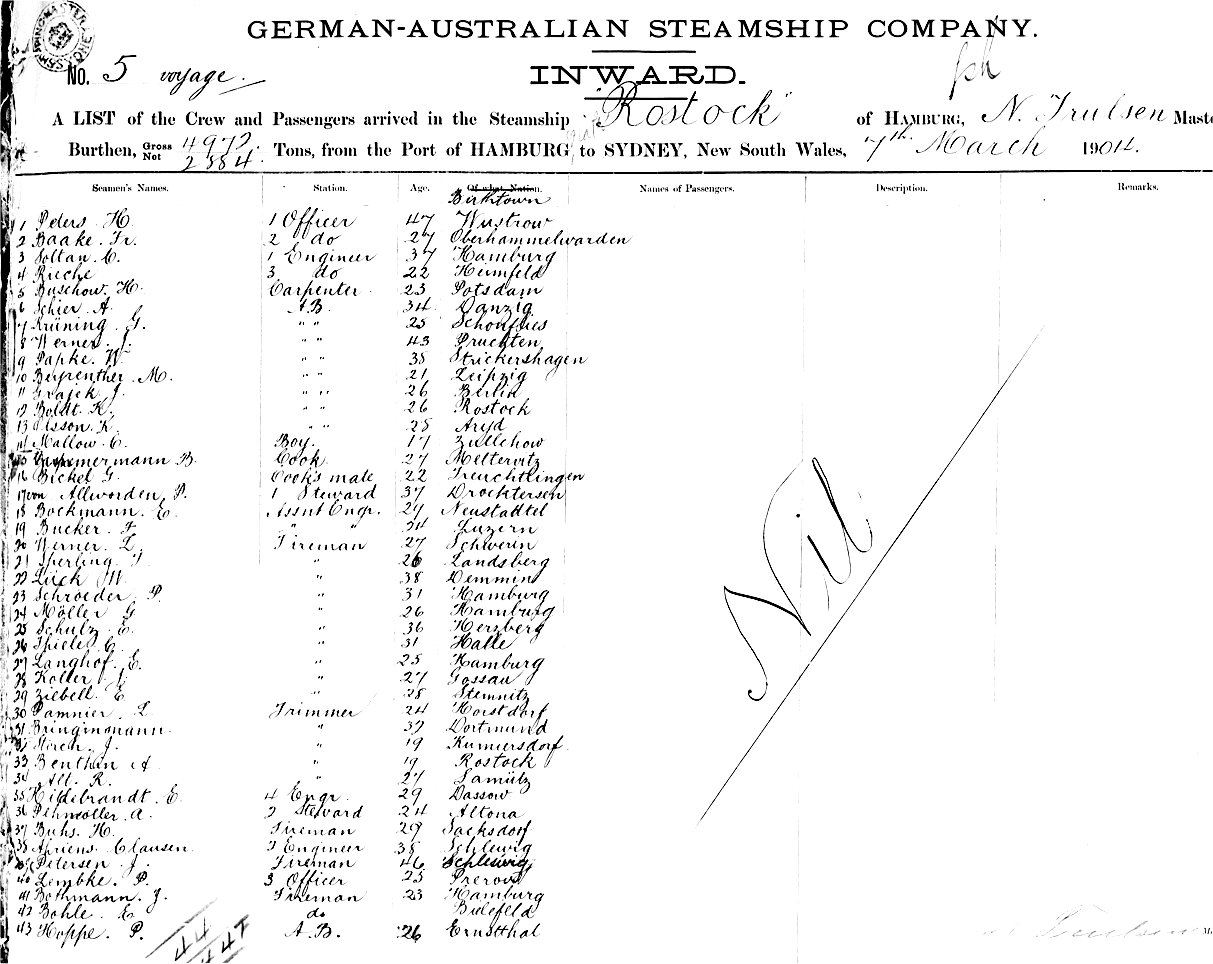 GERMAN-AUSTRALIAN STEAMSHIP COMPANY.
No. 5 voyage.
INWARD.
A LIST of the Crew and Passengers arrived in the Steamship "Rostock" of HAMBURG, N. Trulsen Maste
Burthen, Gross 4972. Net 2884. Tons, from the Port of HAMBURG to SYDNEY, New South Wales, 7th March 1904.
Seamen's Names. Station. Age. Of what Nation. Names of Passengers. Description. Remarks.
Birthtown
1 Peders H. 1 Officer 47 Wustrow
2 Baake. Fr. 2 do 27 Oberhammelwarden
3 Soltan. C. 1 Engineer 37 Hamburg
4 Rieche 3 do 22 Heimfeld
5 Buschow. H. Carpenter 23 Potsdam
6 Schier A. A.B. 34 Danzig
7 Krüning G. " " 25 Schönflies
8 Werner. J. " " 43 Pruchten
9 Papke. W. " " 38 Strickershagen
10 M. " " 21 Leipzig
11 Grajek J. " " 26 Berlin
12 Boldt. K. " " 26 Rostock
13 Olsson. K. " " 28 Aryd
14 Mallow. C. Boy. 17 Züllchow
15 B. Cook 27 Melterwitz
16 Bickel G. Cook's mate 22 Treuchtlingen
17 von Allwörden, P. 1 Steward 37 Drochtersen
18 Bockmann. E. Assnt Engr. 27 Neustadtel
19 Bucker. F. " " 24 Luzern
20 Werner. L. Fireman 27 Schwerin
21 Sperling. F. " 26 Landsberg
22 Lück W. " 38 Demmin
23 Schroeder P. " 31 Hamburg
24 Möller G. " 26 Hamburg
25 Schulz E. " 36 Herzberg
26 Thiele C. " 31 Halle
27 Langhof. E. " 25 Hamburg
28 Koller " 27 Gossau
29 Ziebell E. " 28 Stemnitz
30 Pamnier. L. Trimmer 24 Horstdorf
31 Bringinsmann. " 37 Dortmund
32 Storch. J. " 19 Kumersdorf
33 Benthin A " 19 Rostock
34 Alt. R. " 27 Lamütz
35 Hildebrandt. E. 4 Engr. 29 Dassow
36 Pehmöller. A. 2 Steward 24 Altona
37 Buhs. H. Fireman 29 Sacksdorf
38 Ahriens. Clausen. 2 Engineer 38 Schleswig
39 Petersen. J. Fireman 46 Schleswig
40 Lembke. P. 3 Officer 25 Prerow
41 Bothmann. J. Fireman 23 Hamburg
42 Bohle. E. do Bielefeld
43 Hoppe. P. A.B. 26 Ernstthal
44
447
Nil.
Trulsen